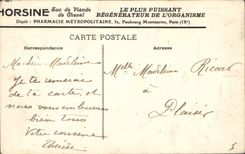 HORSINE Suc de Viande de Cheval
LE PLUS PUISSANT
RÉGÉNÉRATEUR DE L'ORGANISME
Dépôt : PHARMACIE MÉTROPOLITAINE, Faubourg Montmartre, Paris (IXe)
CARTE POSTALE
Correspondance
Adresse
Ma chère Madeleine
Je te remercie
de ta carte, et
nous vous embrassons
bien tous
Votre cousine
Thérèse
Melle Madeleine Ricard
Plaisir